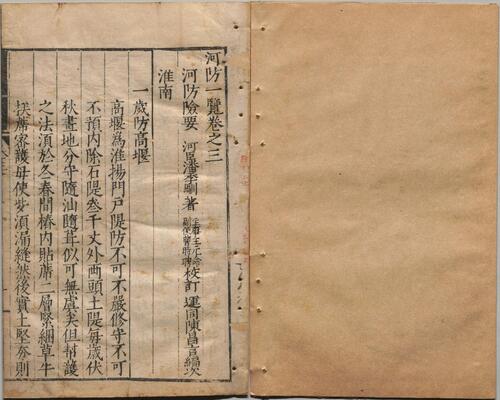 河防一覽卷之三
河防險要
潘季馴著
校訂
運同陳昌言編次
淮南
一歲防高堰
高堰為淮揚門戶隄防不可不嚴修守不可
不預內除石隄叁千丈外兩頭土隄每歲伏
秋畫地分守隨汕隨葺似可無虞矣但幇護
之法須於冬春間樁內貼蓆二層緊綑草牛
挨蓆密護毋使些須漏縫然後實土堅夯則